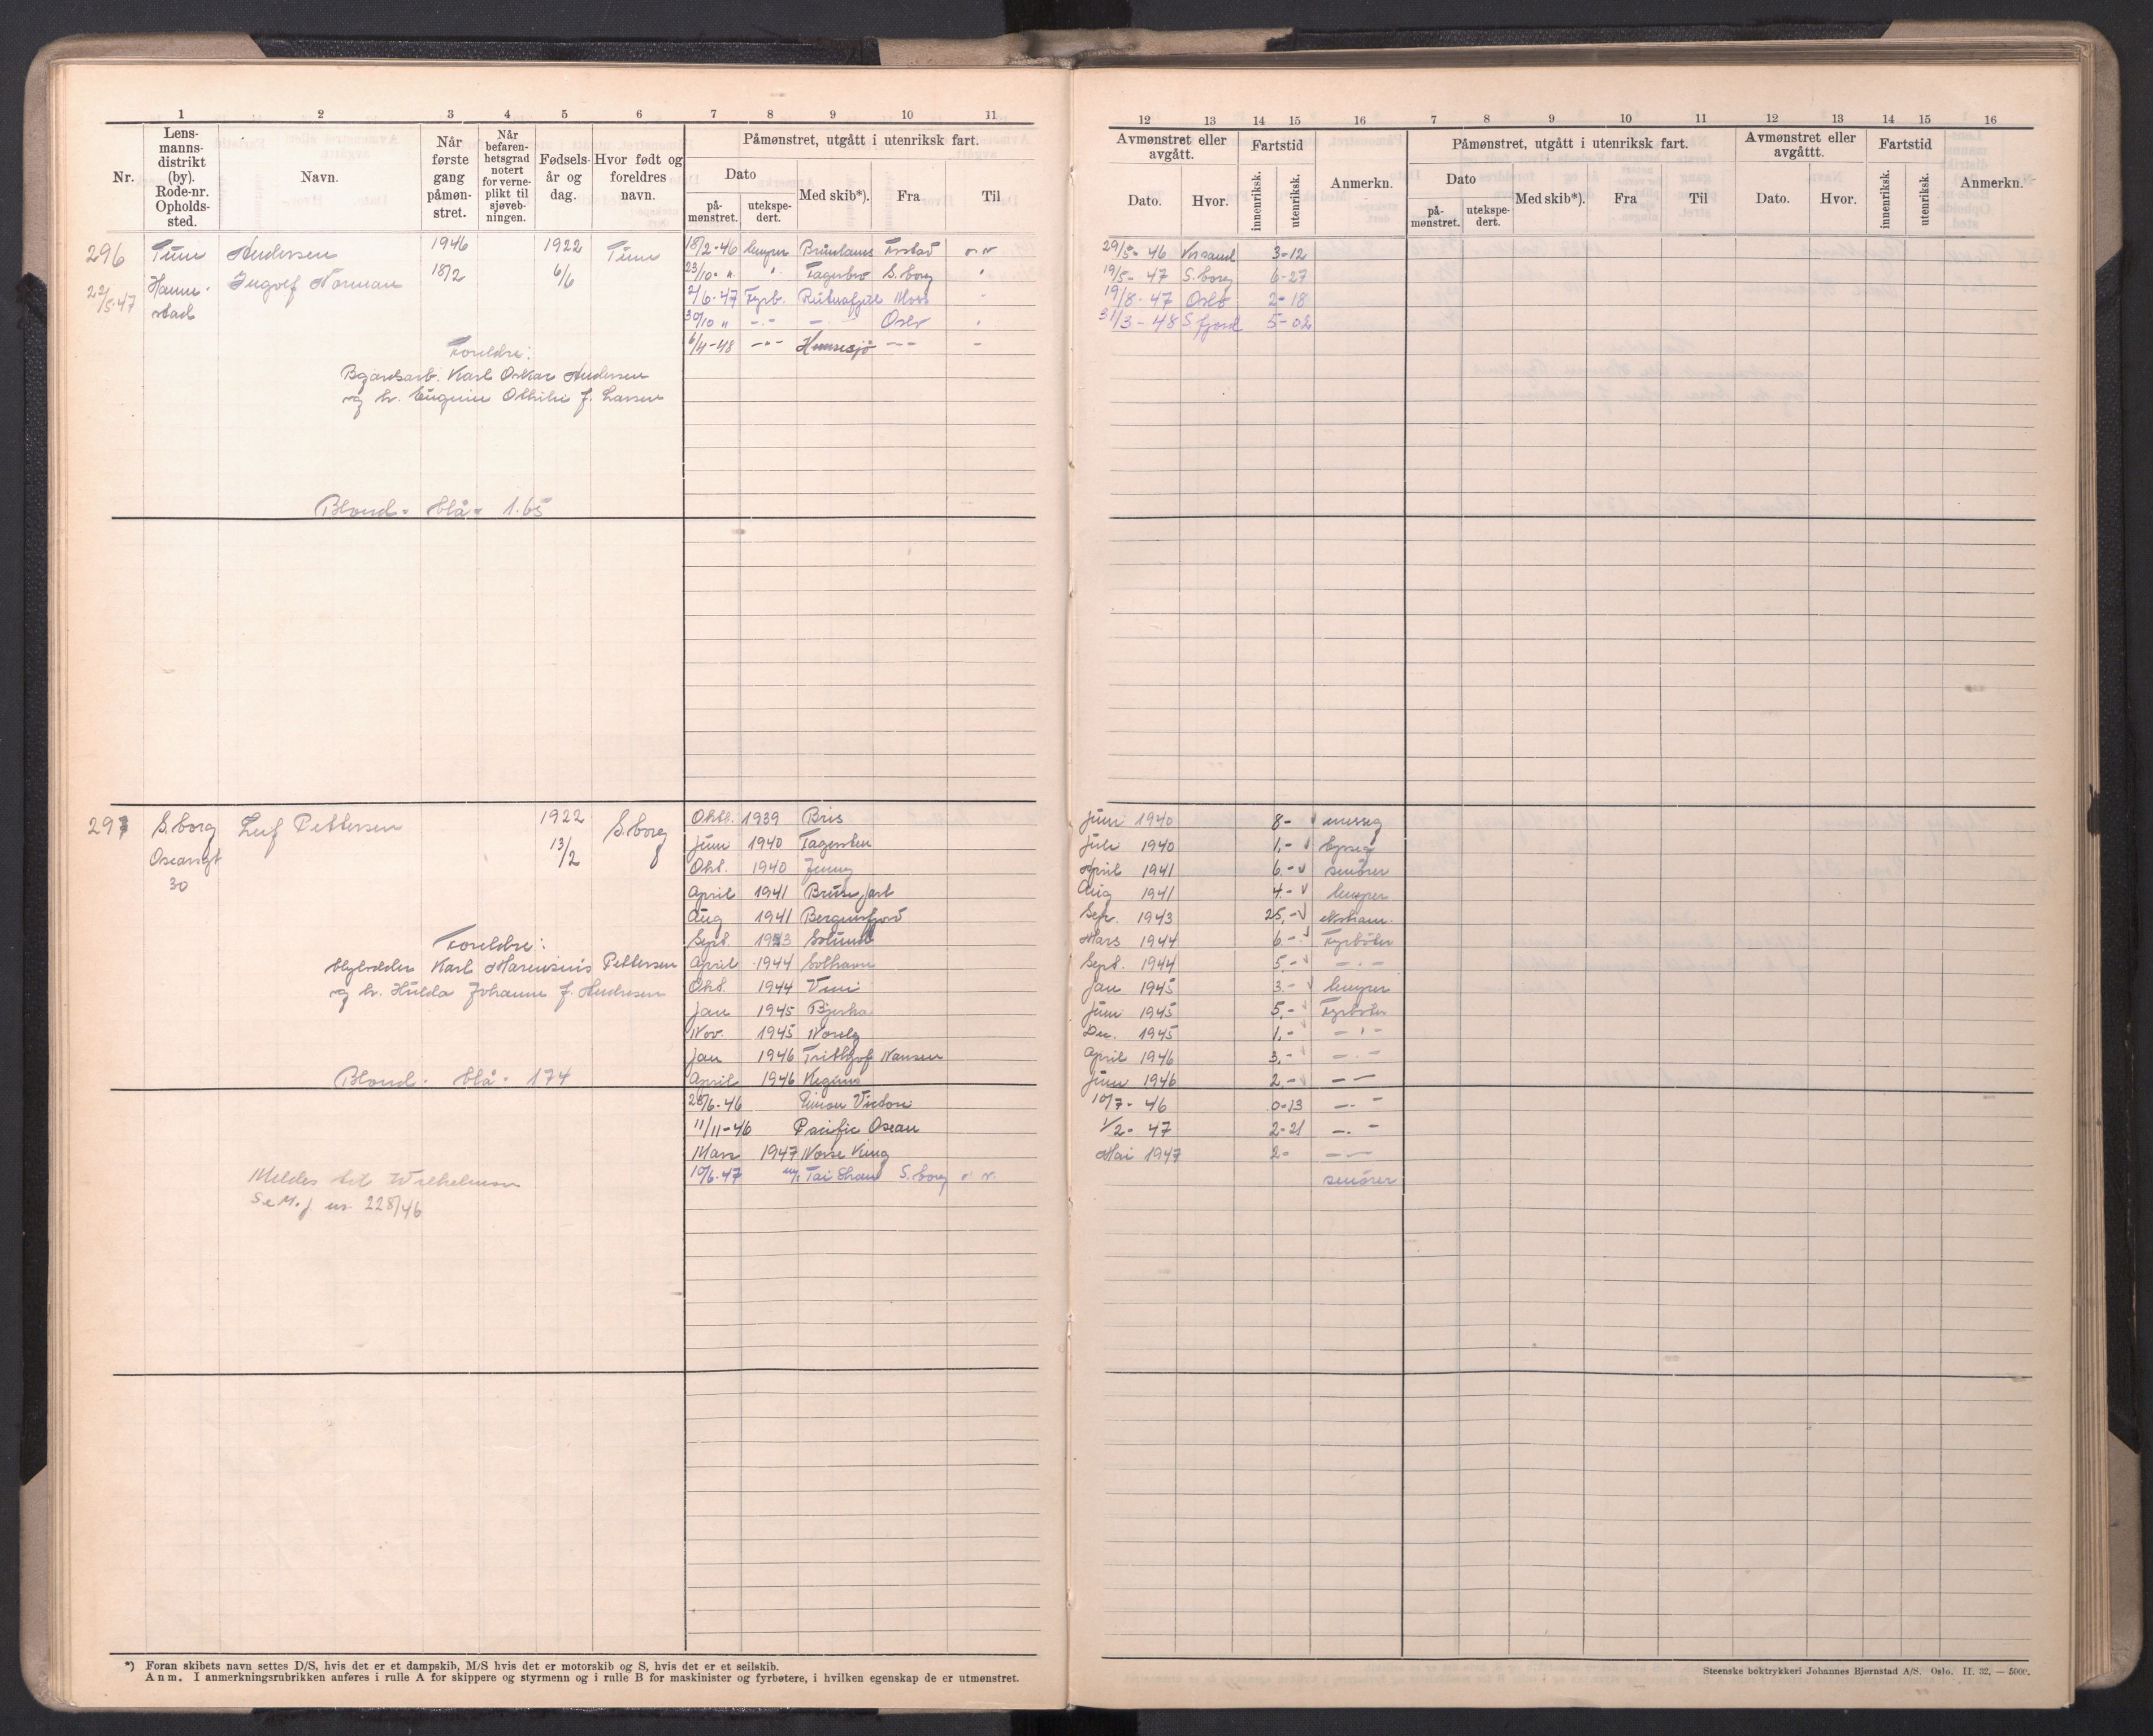 1 2 3 4 5 6 7 8 9 10 11
Nr.
Lens-
manns-
distrikt
(by).
Rode-nr.
Opholds-
sted.
Navn.
Når
første
gang
påmøn-
stret.
Når
befaren-
hetsgrad
notert
for verne-
plikt til
sjøveb-
ningen.
Fødsels-
år og
dag.
Hvor født og
foreldres
navn.
Påmønstret, utgått i utenriksk fart.
Dato
på-
mønstret.
utekspe-
dert.
Med skib*).
Fra
Til
296 Tune Andersen 1946 1922 Tune
22/5-47 Hanne-
stad
Ingolf Norman 18/2 6/6
18/2-46 lemper Brünlanes
23/10- " " Fagerbro S.borg "
2/6-47 Fyrb. Moss "
30/10 " -"- -"- Oslo "
6/4-48 -"- -"- -
Foreldre:
Karl Oskar Andersen
og h. Eugenie Othilie f. Larsen
Blond - blå - 1.65
297 S.borg Leif Pettersen 1922 S.borg
Oscarsgt
30
13/2
Okt. 1939 Bris
Juni 1940 Fagersten
Okt. 1940 Jenny
April 1941 Brune
Aug 1941 Bergensfjord
Sept. 1943 Solund
April 1944 Solhavn
Okt. 1944 Vivi
Jan 1945 Bjerka
Nov. 1945 Norelg
Jan 1946 Frithjof Nansen
April 1946 Reginus
28/6-46 Simon
11/11-46 Pacific Osean
Mars 1947 Norse King
10/6-47 m/s Tai Shan S.borg
Foreldre:
Karl Marensius Pettersen
og h. Hulda Johanne f. Andresen
Blond - blå - 174
Meldes til Wilhelmsen
S e M. j nr. 228/46
*) Foran skibets navn settes D/S, hvis det er et dampskib, M/S hvis det er motorskib og S, hvis det er et seilskib.
Anm. I anmerkningsrubrikken anføres i rulle A for skippere og styrmenn og i rulle B for maskinister og fyrbøtere, i hvilken egenskap de er utmønstret.
12 13 14 15 16 7 8 9 10 11 12 13 14 15 16
Avmønstret eller
avgått.
Dato.
Hvor.
Fartstid
innenriksk.
utenriksk.
Anmerkn.
Påmønstret, utgått i utenriksk fart.
Dato
på-
mønstret.
utekspe-
dert.
Med skib*).
Fra
Til
Avmønstret eller
avgåttt.
Dato.
Hvor.
Fartstid
innenriksk.
utenriksk.
Anmerkn.
29/5-46 Krsand 3-12
19/5-47 S.borg 6-27
19/8-47 Oslo 2-18
31/3-48 S fjord 5-02
Juni 1940 8- messeg
Juli 1940 1.- byssg
April 1941 6.- smörer
Aug 1941 4.- lemper
Sept. 1943 25.-
Mars 1944 6.- Fyrböter
Sept. 1944 5.- -"-
Jan 1945 3.- lemper
Juni 1945 5.- Fyrböter
Des. 1945 1.- -"-
April 1946 3.- -"-
Juni 1946 2.- -"-
10/7-46 0-13 -"-
1/2-47 2-21 -"-
Mai 1947 2- -"-
smörer
Steenske boktrykkeri Johannes Bjørnstad A/S. Oslo. II. 32. — 5000.